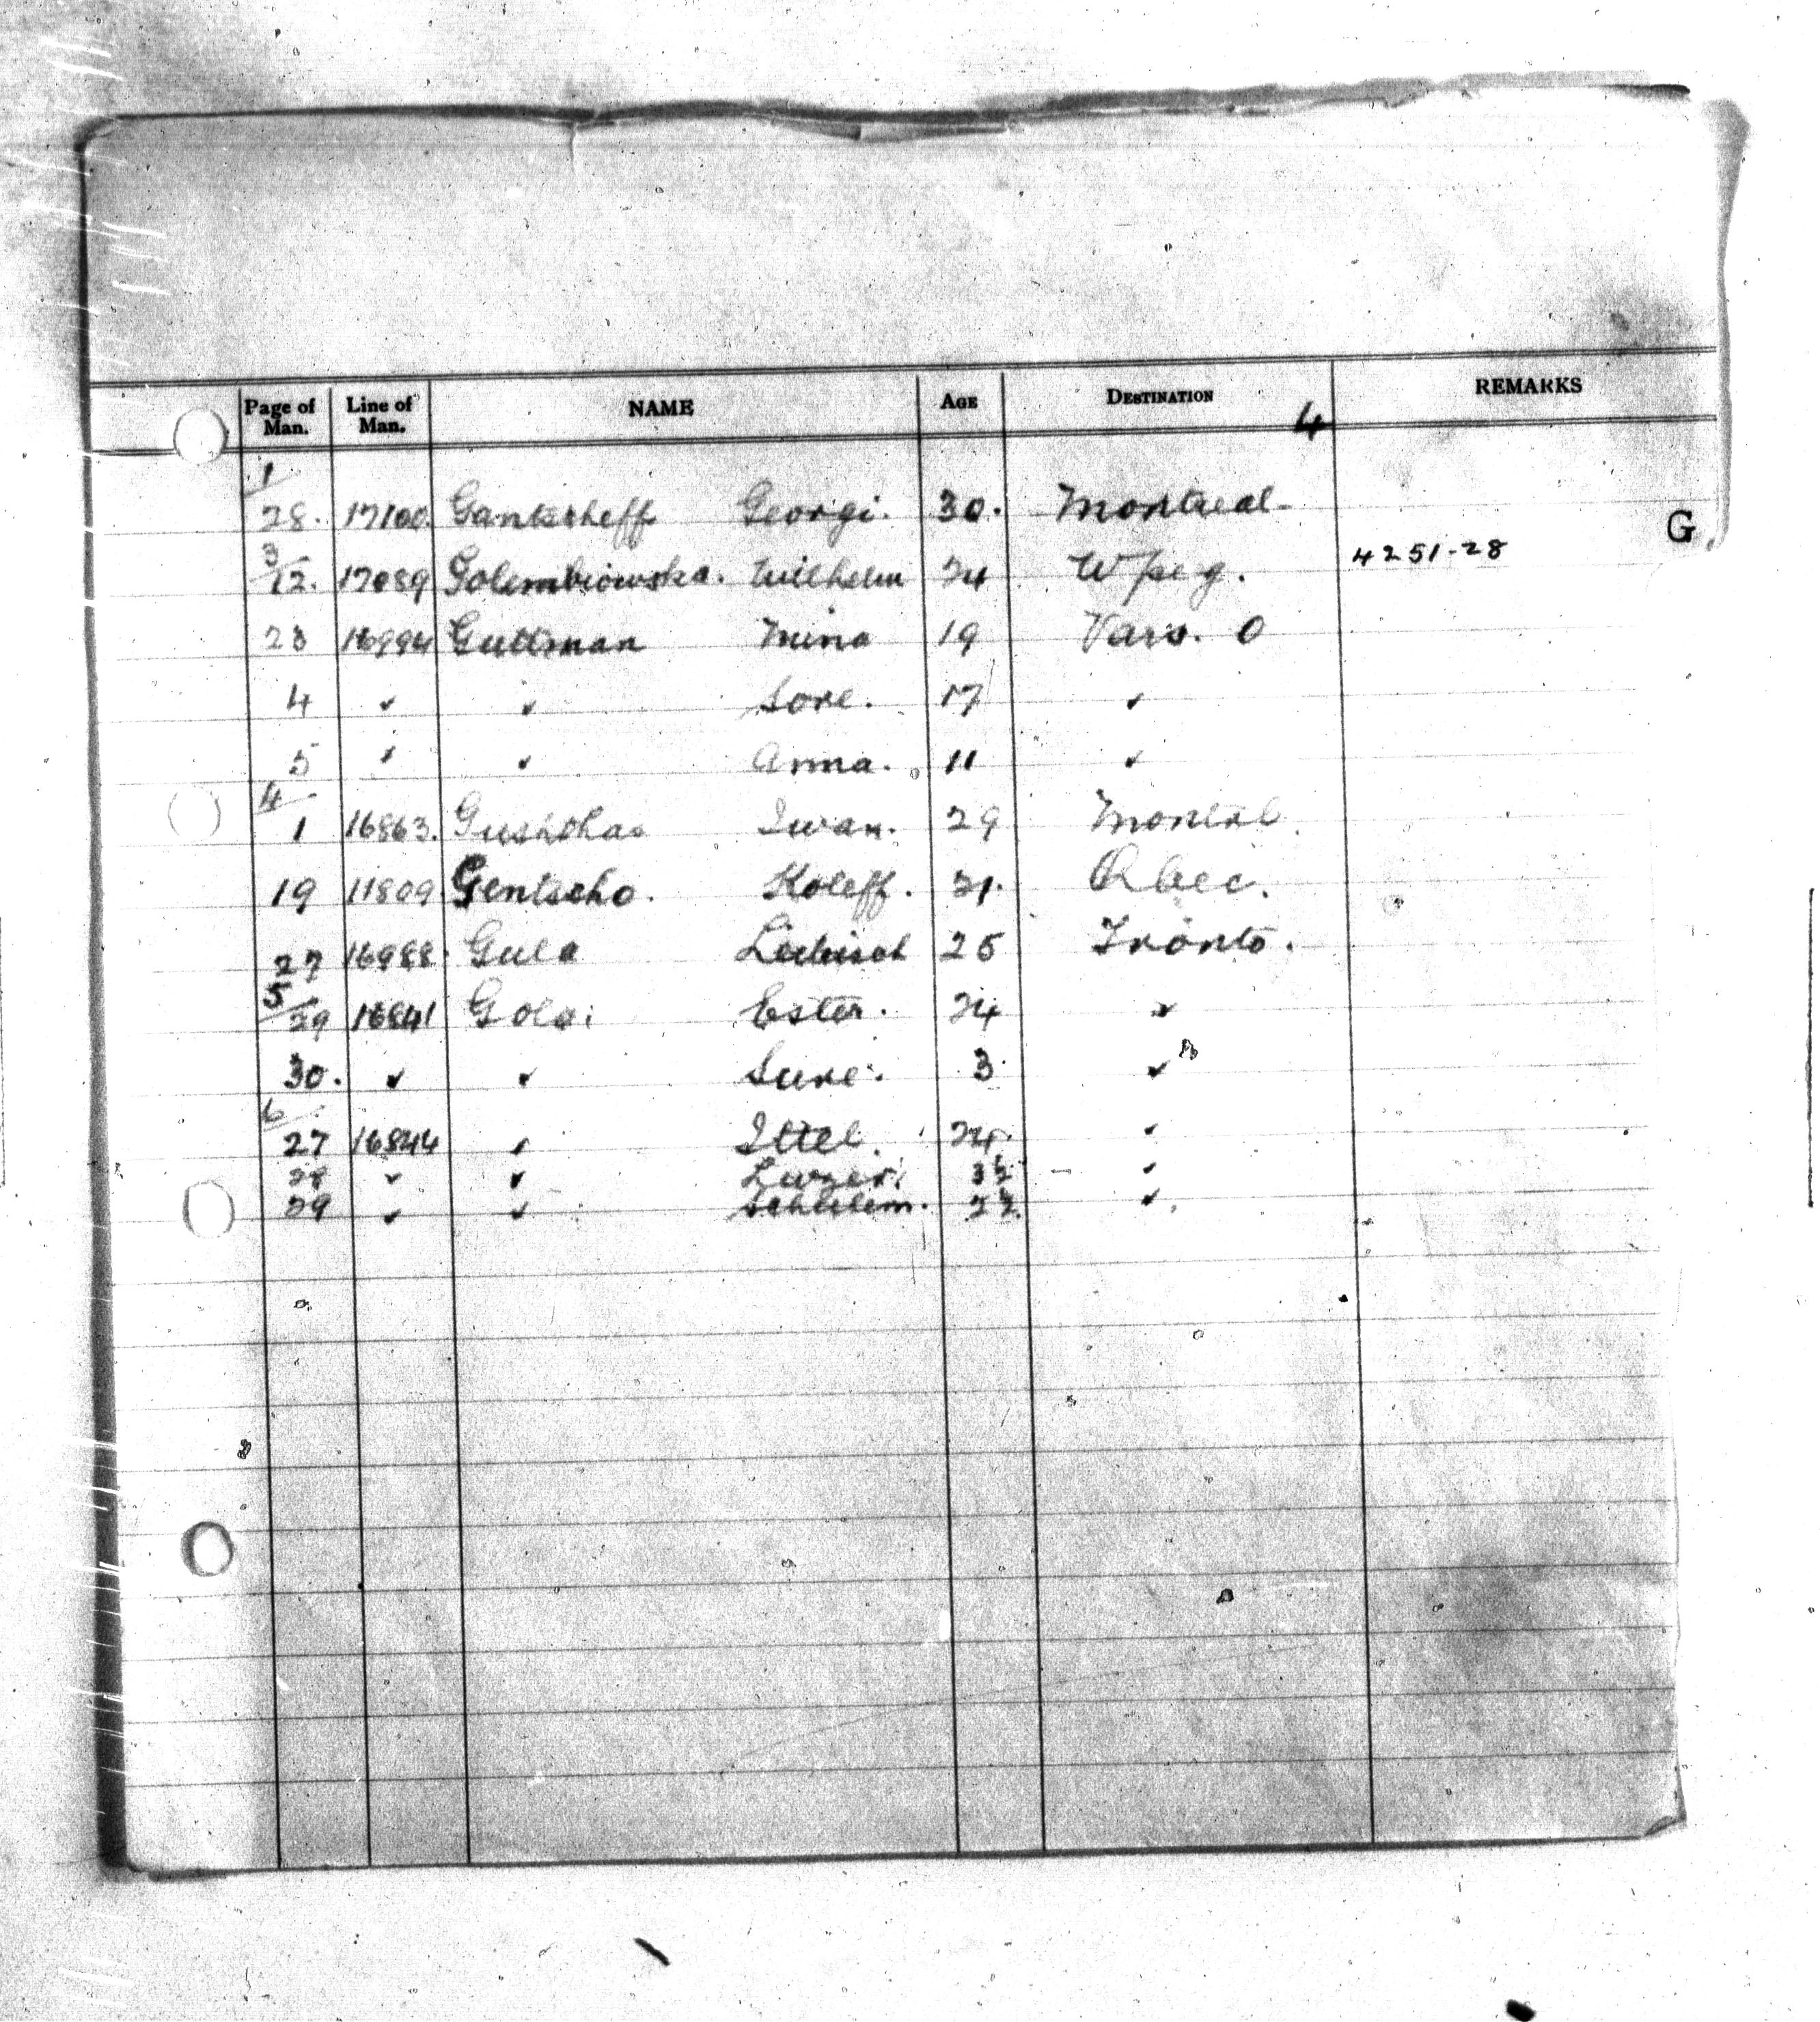 Page of Man. Line of Man. NAME AGE DESTINATION REMARKS
4
1/
28. 17100. Gantscheff Georgi. 30. Montreal-
G
3/
12. 17089 Golembiowska. Wilhelm 24 Wpeg. 4251-28
23 16994 Guttman Mina 19 Vars. O
4 " " Sore. 17 "
5 " " Anna. 11 "
4/
1 16863. Iwan. 29 Montral.
19 11809. Gentscho. Koleff. 31. Qbec.
27 16988. Gula 25 Tronto.
5/
29 16841 Gola. Ester. 24 "
30. " " Sure. 3 "
6/
27 16844 " Ittel. 24. "
28 " " Luzer. 3½ "
29 " " Schulem. 2½ "